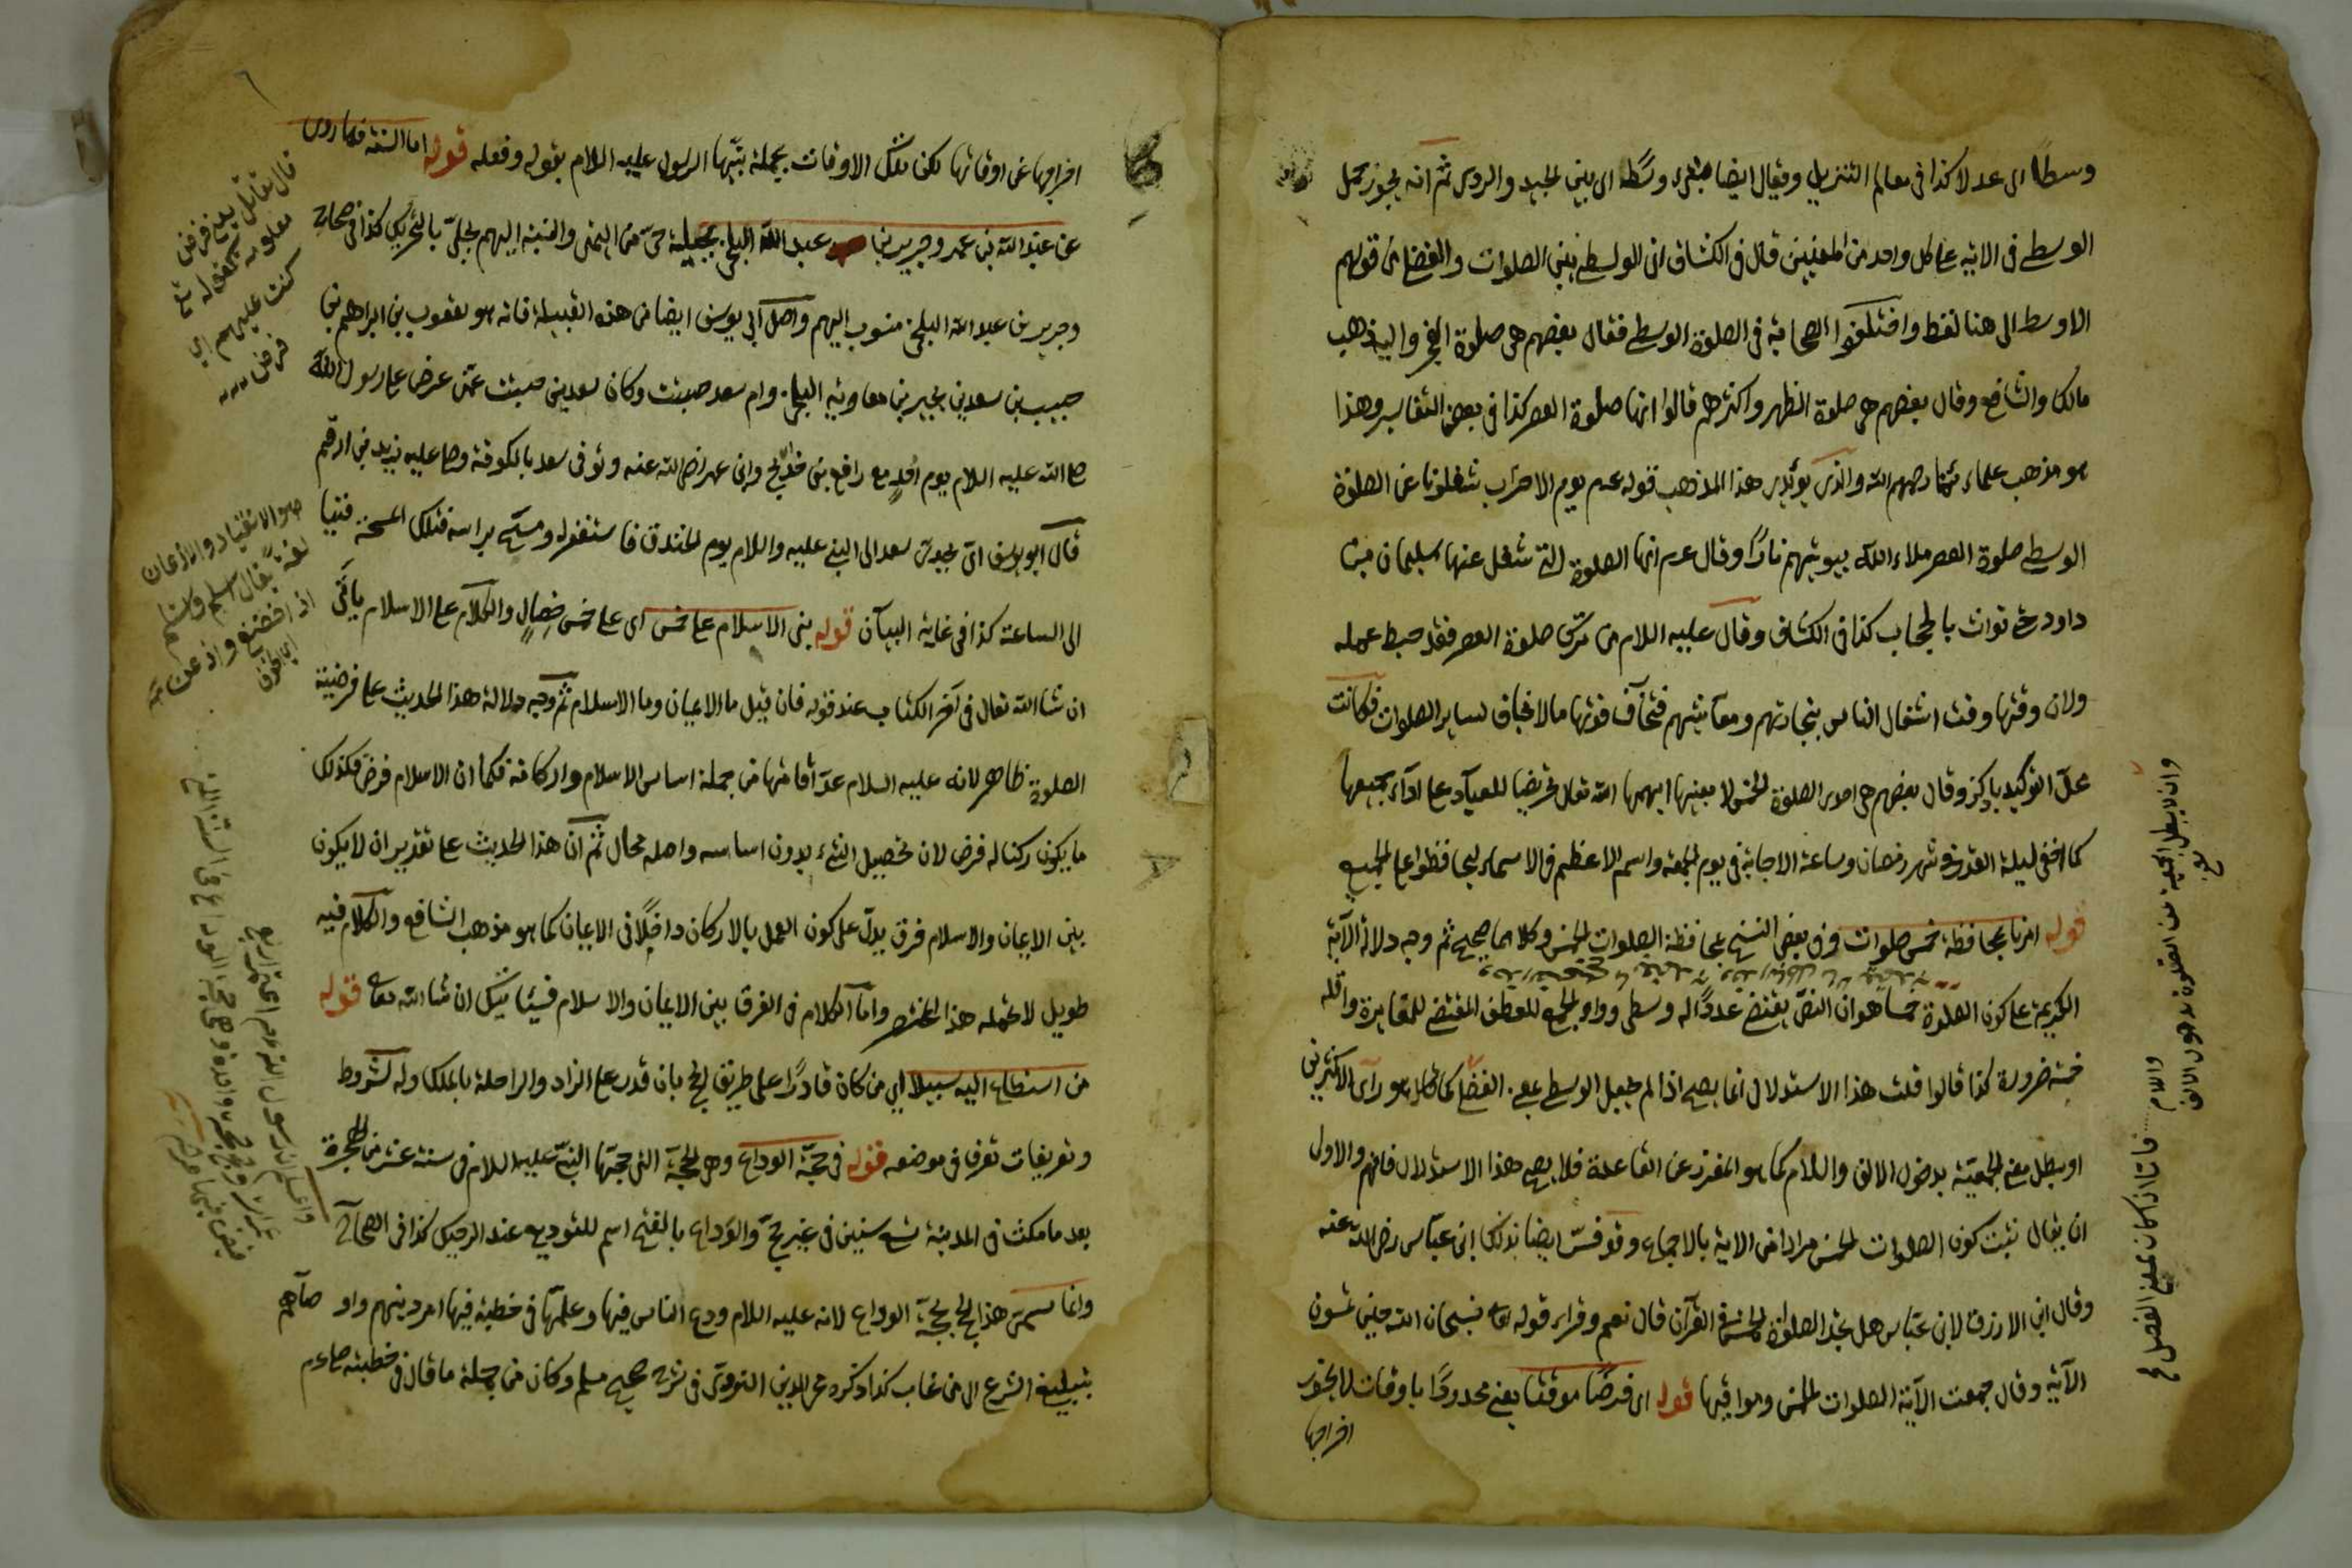 وسطًا اى عدلا كذا فى معالم التنزيل ويقال ايضا وسَطا اى بين الجيد والردى ثم انه يجوز حمل
الوسطى فى الاية على كل واحد من المعنيين قال فى الكشاف اى الوسطى بين الصلوات والفضلى من قولهم
الاوسط الى هنا لفظه واختلفوا الصحابة فى الصلوة الوسطى فقال بعضهم هى صلوة الفجر واليه ذهب
مالك والشافعى وقال بعضهم هى صلوة الظهر واكثرهم قالوا انها صلوة العصر كذا فى بعض التفاسير وهذا
هو مذهب علمائنا رحمهم الله والذى يؤيد هذا المذهب قوله عم يوم الاحزاب شغلونا عن الصلوة
الوسطى صلوة العصر ملاء الله بيوتهم نارًا وقال عم انها الصلوة التى شغل عنها سليمان بن
داود حتى توارت بالحجاب كذا فى الكشاف وقال عليه السلام من ترك صلوة العصر فقد حبط عمله
ولان وقتها وقت اشتغال الناس بتجاراتهم ومعايشهم فتخاف فوتها ما لا يخاف لساير الصلوات فكانت
محل التوكيد بالذكر وقال بعضهم هى احدى الصلوة الخمس لا بعينها ابهمها الله تعالى تحريضا للعباد على اداء جميعها
كما اخفى ليلة القدر فى شهر رمضان وساعة الاجابة فى يوم الجمعة واسم الاعظم فى الاسماء ليحافظوا على الجميع
قوله امرنا بمحافظة خمس صلوات وفى بعض النسخ بمحافظة الصلوات الخمس وكلاهما صحيح ثم وجه دلالة الآية
الكريمة على كون الصلوة خمسا هو ان النص يقتضى عددًا له وسطى وواو الجمع للعطف المقتضى للمغايرة واقله
خمسة ضرورة كذا قالوا قلت هذا الاستدلال انما يصح اذا لم يجعل الوسطى بمعنى الفضلى كما هو راى الاكثرين
او يبطل معنى الجمعية بدخول الالف واللام كما هو المقرر عن القاعدة فلا يصح هذا الاستدلال فافهم والاولى
ان يقال ثبت كون الصلوات الخمس مرادا من الاية بالاجماع وقد فسر ايضا بذلك ابن عباس رضى الله عنه
وقال ابن الازرق لابن عباس هل تجد الصلوة الخمس فى القرآن قال نعم وقراء قوله تعالى فسبحان الله حين تمسون
الآية وقال جمعت الآية الصلوات الخمس ومواقيتها قوله اى فرضًا موقتا يعنى محدودًا باوقات لا يجوز
اخراجها
وان لا يبطل الجمعية من الصلوة بدخول الالف
واللام
فاما اذا كان بمعنى الفضلى
اخراجها عن اوقاتها لكن تلك الاوقات مجملة بيّنها الرسول عليه السلام بقوله وفعله قوله اما السنة فما روى
عن عبد الله بن عمر وجرير بن عبد الله البجلى بجيلة حى من اليمن والنسبة اليهم بجلى بالتحريك كذا فى الصحاح
وجرير بن عبد الله البجلى منسوب اليهم واصل ابى يوسف ايضا من هذه القبيلة فانه هو يعقوب بن ابراهيم بن
حبيب بن سعد بن بجير بن معاوية البجلى وام سعد حبتة وكان سعد بن حبتة ممن عرض على رسول الله
صلى الله عليه السلام يوم احد مع رافع بن خديج وابن عمر رضى الله عنه وتوفى سعد بالكوفة وصلى عليه زيد بن ارقم
قال ابو يوسف اتى بجدى سعد الى النبى عليه والسلام يوم الخندق فاستغفر له ومسح براسه فتلك المسحة فينا
الى الساعة كذا فى غاية البيان قوله بنى الاسلام على خمس اى على خمس خصال والكلام على الاسلام ياتى
ان شاالله تعالى فى آخر الكتاب عند قوله فان قيل ما الايمان وما الاسلام ثم وجه دلالة هذا الحديث على فرضية
الصلوة ظاهر لانه عليه السلام عدّ اقامتها من جملة اساس الاسلام واركانه فكما ان الاسلام فرض فكذلك
ما يكون ركنا له فرض لان تحصيل الشئ بدون اساسه واصله محال ثم ان هذا الحديث على تقدير ان لا يكون
بين الايمان والاسلام فرق يدل على كون العمل بالاركان داخلًا فى الايمان كما هو مذهب الشافعى والكلام فيه
طويل لا يحمله هذا المختصر واما الكلام فى الفرق بين الايمان والاسلام فسيأتيك ان شاالله تعالى قوله
من استطاع اليه سبيلا اى من كان قادرًا على طريق الحج بان قدر على الزاد والراحلة بالملك وله شروط
وتعريفات تعرف فى موضعه قوله فى حجّة الوداع وهى الحجّة التى حجّها النبى عليه السلام فى سنة عشر من الهجرة
بعد ما مكث فى المدينة تسع سنين فى غير حج والوَداع بالفتح اسم للتوديع عند الرحيل كذا فى الصحاح
وانما سمى هذا الحج بحجة الوداع لانه عليه السلام ودع الناس فيها وعلمها فى خطبة فيها امر دينهم واوصاهم
بتبليغ الشرع الى من غاب كذا ذكره محى الدين النووى فى شرح صحيح مسلم وكان من جملة ما قال فى خطبته صلى عم
هو الانقياد والاذعان
لغة يقال اسلم
اذا خضع واذعن